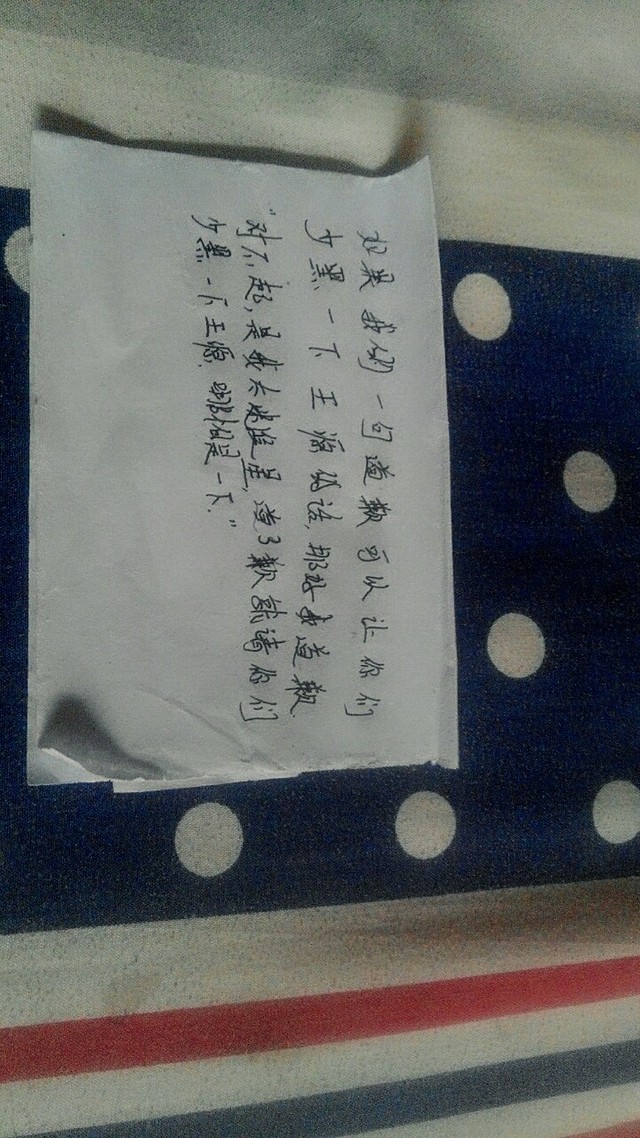 如果我们一句道歉可以让你们
少黑一下王源的话,那好我道歉.
"对不起,是我太迷追星,道了歉就请你们
少黑一下王源.哪怕是一下."